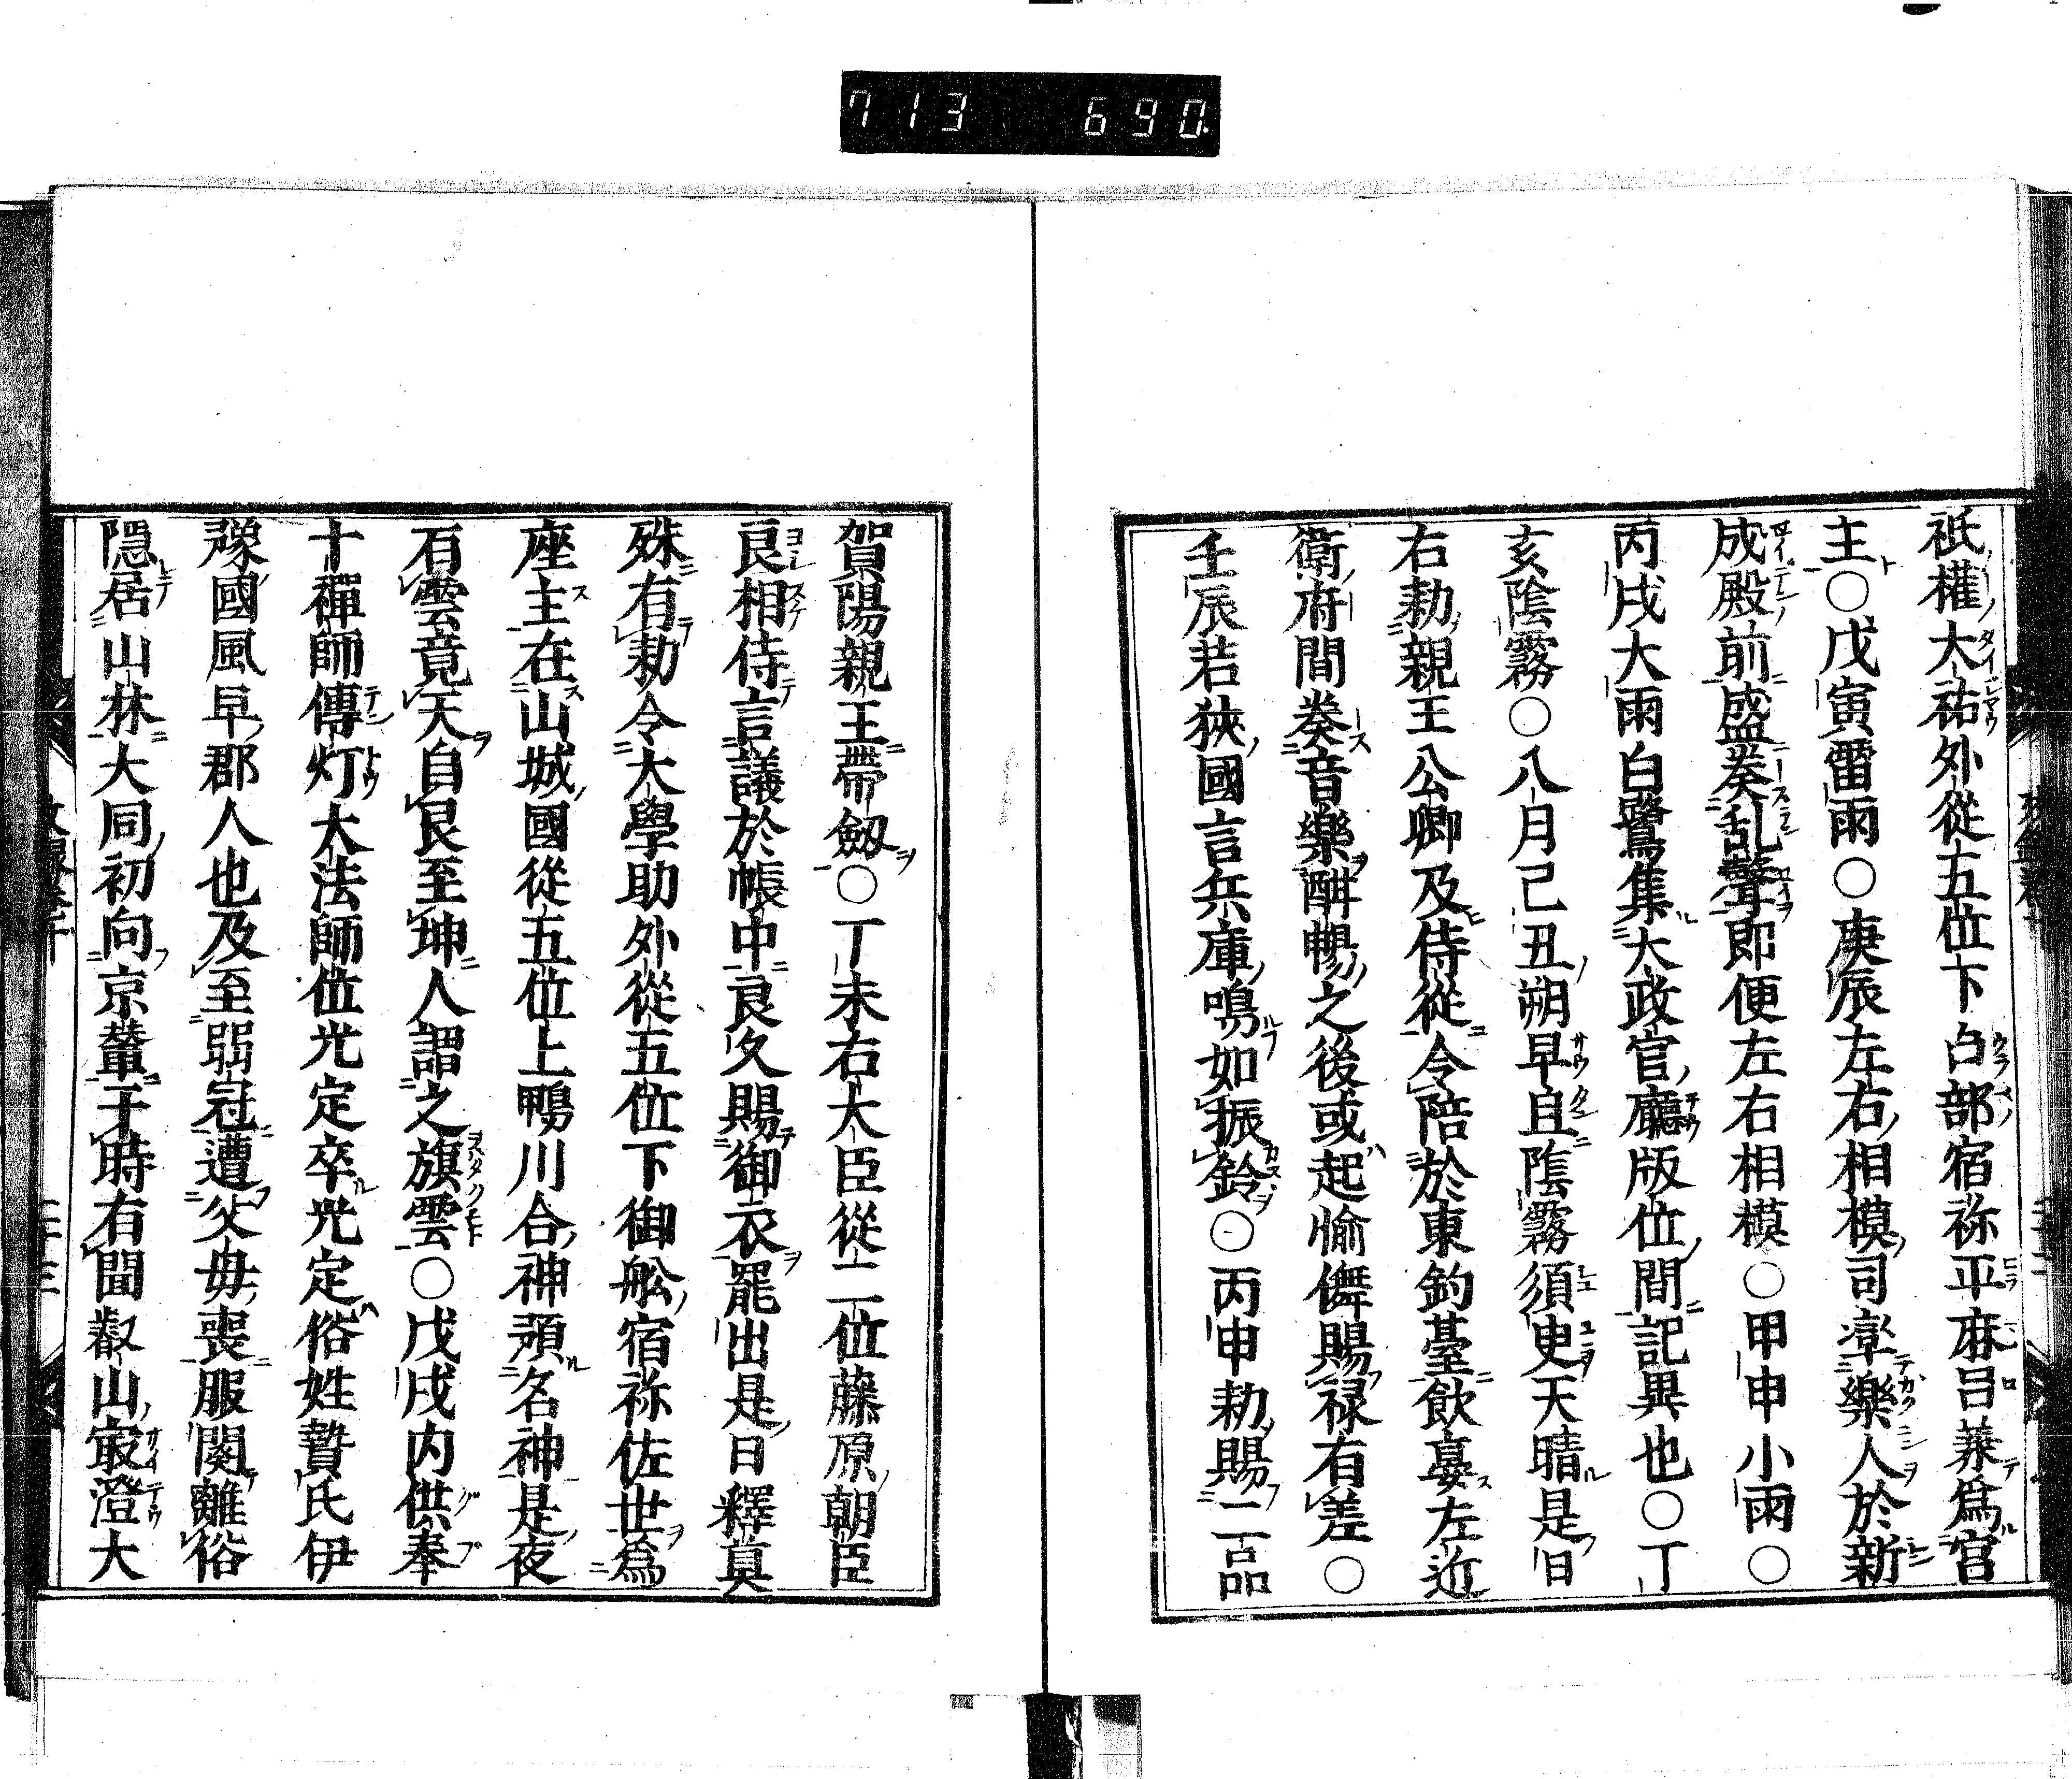 713 690
祇權大祐外從五位下占部宿祢平麻呂兼爲宮
主○戊寅雷雨○庚辰左右相模司率樂人於新
成殿前盛奏乱聲即便左右相模○甲申小雨○
丙戌大雨白鷺集大政官廳版位間記異也○丁
亥陰霧○八月己丑朔早旦陰霧須臾天晴是日
右勅親王公卿及侍從令陪於東釣臺飲宴左近
衛府間奏音樂酣暢之後或起愉儛賜禄有差○
壬辰若狹國言兵庫鳴如振鈴○丙申勅賜二品
賀陽親王帶劔○丁未右大臣從二位藤原朝臣
良相侍言議於帳中良久賜御衣罷出是日釋奠
殊有勅令大學助外從五位下御舩宿祢佐世爲
座主在山城國從五位上鴨川合神預名神是夜
有雲竟天自艮至坤人謂之旗雲○戊戌内供奉
十禪師傳灯大法師位光定卒光定俗姓贄氏伊
豫國風早郡人也及至弱冠遭父母喪服闋離俗
隱居山林大同初向京輦于時有聞叡山寂澄大